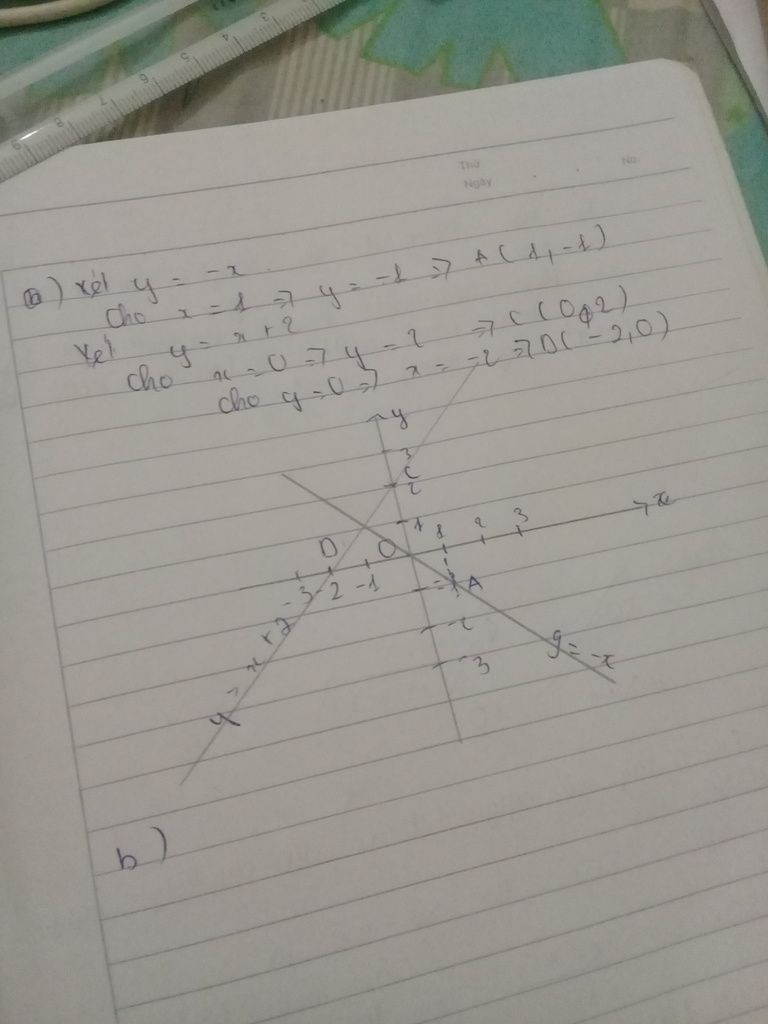 3 4 5 6 7 8 9
Thứ
Ngày . . No.
a) Xét y = -x
Cho x = 1 => y = -1 => A(1,-1)
Xét y = x + 2
Cho x = 0 => y = 2 => C(0,2)
Cho y = 0 => x = -2 => D(-2,0)
y
3
C
2
1
1 2 3 x
D O
-3 -2 -1
-1 A
-2
-3
y = -x
y = x + 2
b)